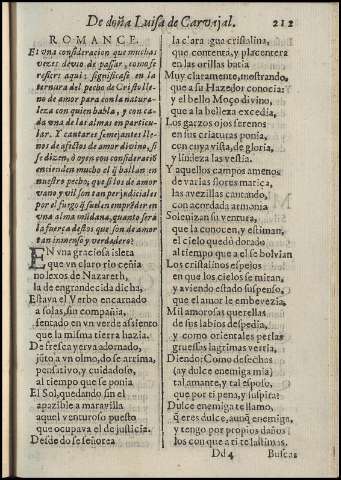 De doña Luisa de Carvajal. 212
ROMANCE.
Es vna consideracion que muchas
vezes devio de passar, como se
refiere aqui: significase en la
ternura del pecho de Christo lle-
no de amor para con la natura-
leza con quien habla, y con ca-
da vna de las almas en particu-
lar. Y cantares semejantes lle-
nos de afectos de amor divino, si
se dizen, ò oyen con consideraciõ
encienden mucho el q̃ hallan en
nuestro pecho; que si los de amor
vano y vil son tan perjudiciales
por el fuego q̃ suelen emprẽder en
vna alma mũdana, quanto serà
la fuerça destos que son de amor
tan inmenso y verdadero?
EN vna graciosa isleta
que vn claro rio ceñia
no lexos de Nazareth,
la de engrandecida dicha,
Estava el Verbo encarnado
a solas, sin compañia,
sentado en vn verde assiento
que la misma tierra hazia.
De fresca yerva adornado,
jũto a vn olmo, do se arrima,
pensativo, y cuidadoso,
al tiempo que se ponia
El Sol, quedando sin el
apazible a maravilla
aquel venturoso puesto
que ocupava el de justicia.
Desde do se señorea
la clara agua cristalina,
que contenta, y placentera
en las orillas batia
Muy claramente, mostrando,
que a su Hazedor conocia:
y el bello Moço divino,
que a la belleza excedia,
Los garzos ojos serenos
en sus criaturas ponia,
con cuya vista, de gloria,
y lindeza las vestia.
Y aquellos campos amenos
de varias flores matica,
las avezillas cantando,
con acordada armonia
Solenizan su ventura,
que la conocen, y estiman,
el cielo quedò dorado
al tiempo que a el se bolvian
Los cristalinos espejos
en que los cielos se miran,
y aviendo estado suspenso,
que el amor le embevezia,
Mil amorosas querellas
de sus labios despedia,
y como orientales perlas
gruessas lagrimas vertia,
Diziendo: Como desechas
(ay dulce enemiga mia)
tal amante, y tal esposo,
que por ti pena, y suspira?
Dulce enemiga te llamo,
q̃ eres dulce, aunq̃ enemiga,
y tengo por propios daños
los con que a ti te lastimas.
Dd 4 Buscas